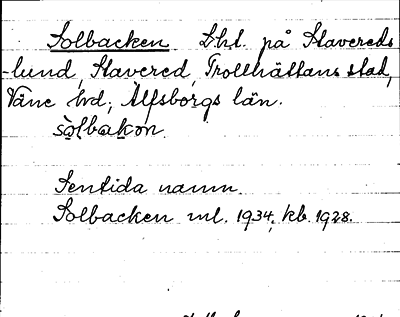 Solbacken Lht. på Stavereds
-lund, Stavered, Trollhättans stad,
Väne hrd; Älfsborgs län.
sòlbakən
Sentida namn.
Solbacken ml. 1934, kb. 1928.